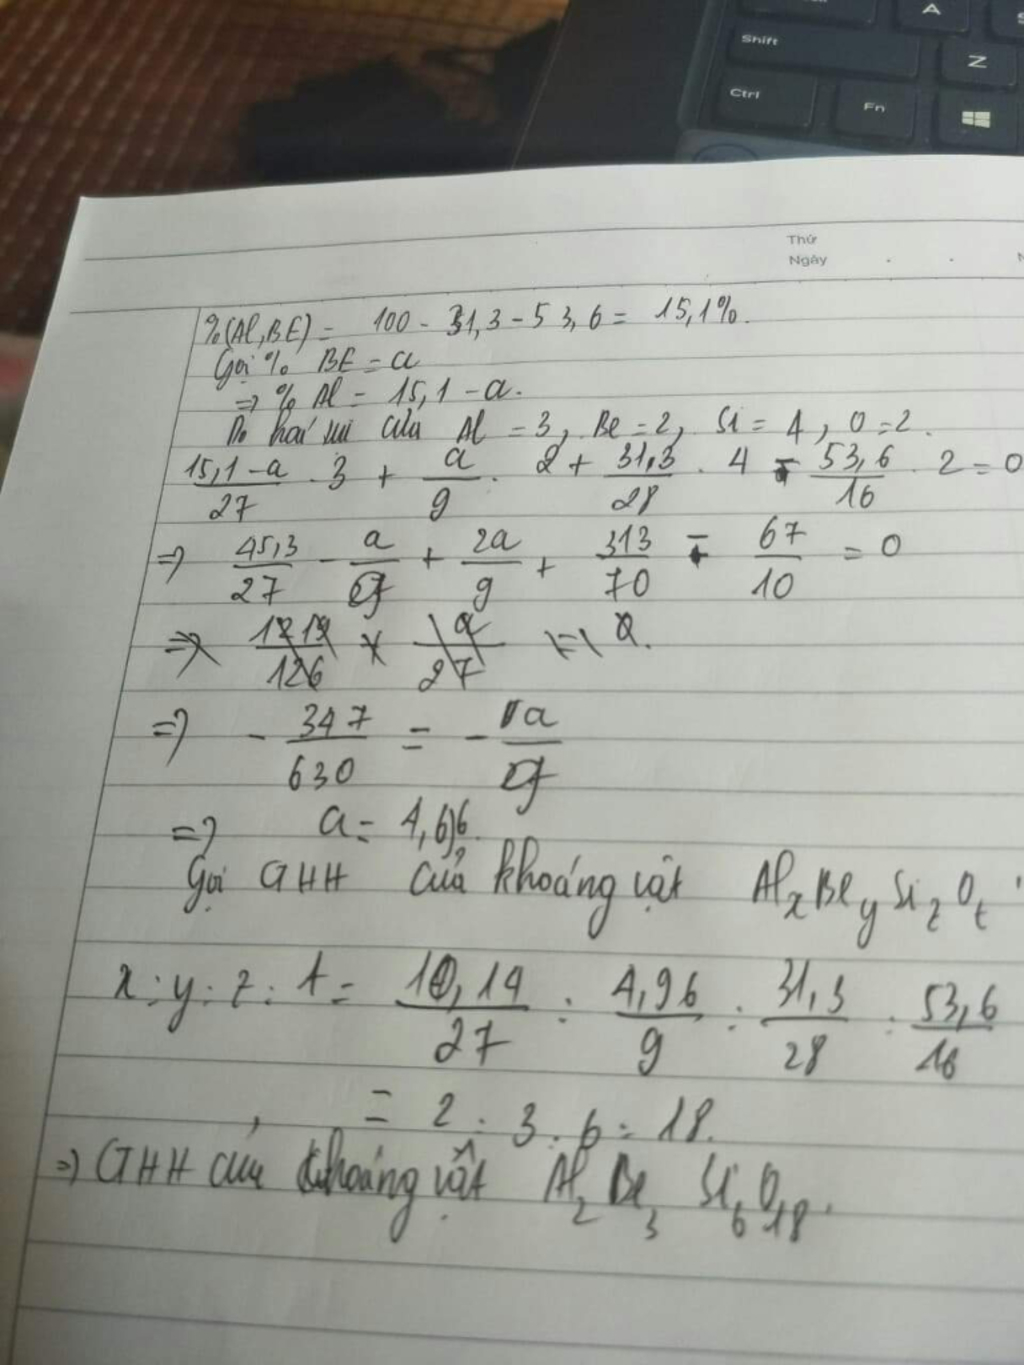 A
Shift
Z
Ctrl
Fn
Thứ
Ngày
%(Al,BE) = 100 - 31,3 - 53,6 = 15,1%.
Gọi % BE = a
=> % Al = 15,1 - a.
Do hoá trị của Al = 3, Be = 2, Si = 4, O = 2.
15,1-a/27 . 3 + a/9 . 2 + 31,3/28 . 4 - 53,6/16 . 2 = 0
=> 45,3/27 - a/9 + 2a/9 + 313/70 - 67/10 = 0
=> - 347/630 = - 1a/9
=> a = 4,96
Gọi CTHH của khoáng vật AlxBeySizOt
x : y : z : t = 10,14/27 : 4,96/9 : 31,3/28 : 53,6/16
= 2 : 3 : 6 : 18.
=> CTHH của khoáng vật Al2Be3Si6O18.